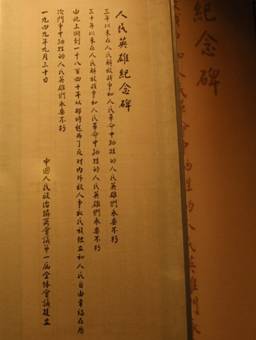 人民英雄紀念碑
三年以來在人民解放戰爭和人民革命中犧牲的人民英雄們永垂不朽
三十年以來在人民解放戰爭和人民革命中犧牲的人民英雄們永垂不朽
由此上溯到一千八百四十年從那時起為了反對內外敵人爭取民族獨立和人民自由幸福在歷
次鬥爭中犧牲的人民英雄們永垂不朽
一九四九年九月三十日
中國人民政治協商會議第一屆全體會議建立
紀念碑